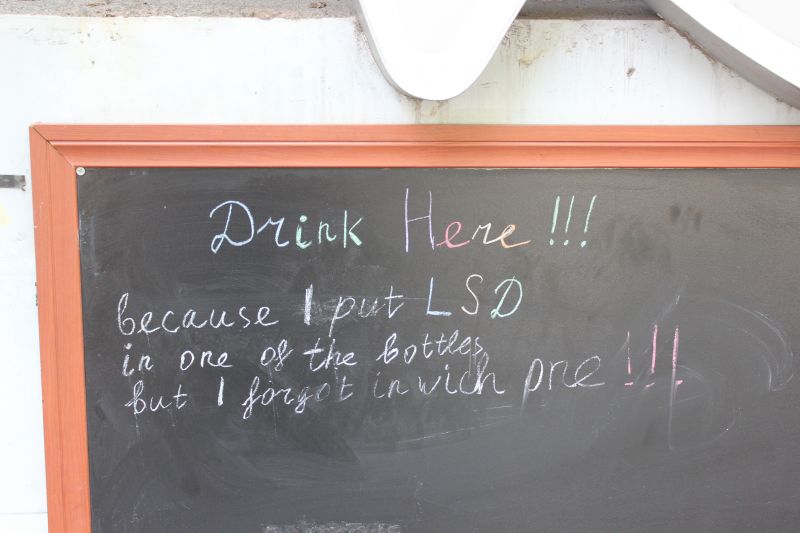 Drink Here !!!
because I put LSD
in one of the bottles
but I forgot in wich one !!!